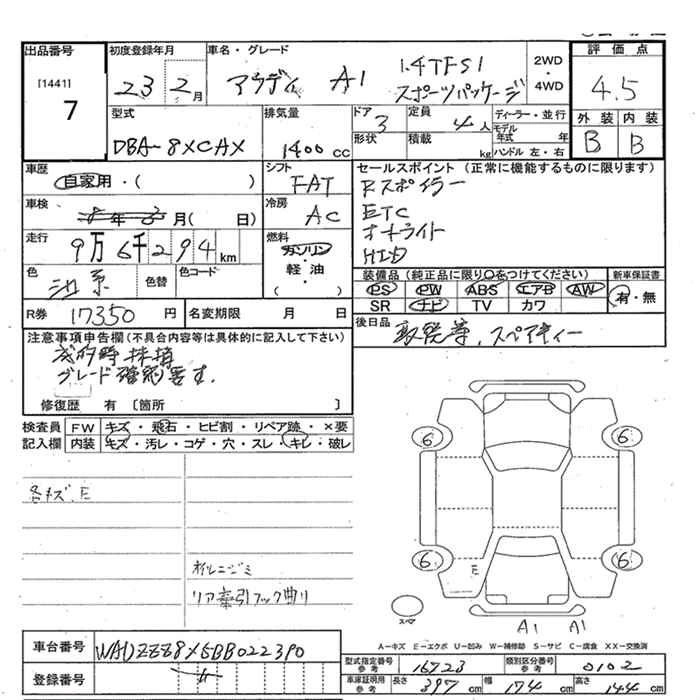 出品番号 初度登録年月 車名・グレード 評価点
[1441] 7
23 2月 アウディ A1 1.4TFSI スポーツパッケージ
2WD・4WD
4.5
型式 排気量 ドア 定員 ディーラー・並行 外装 内装
DBA-8XCAX 1400cc 3 4人
形状 積載 kg モデル年式 年 ハンドル 左・右
B B
車歴 自家用・( ) シフト FAT
セールスポイント (正常に機能するものに限ります)
Rスポイラー
ETC
オートライト
HID
車検 年 月( 日) 冷房 AC
走行 9万6千294km 燃料 ガソリン・軽油・( )
色 系 色替 色コード
装備品 (純正品に限り○をつけてください) 新車保証書
PS PW ABS エアB AW 有・無
SR ナビ TV カワ
R券 17350円 名変期限 月 日
後日品 取説等、スペアキー
注意事項申告欄(不具合内容等は具体的に記入して下さい)
グレード確認要す。
修復歴 有〔箇所 〕
検査員記入欄
FW キズ・飛石・ヒビ割・リペア跡・×要
内装 キズ・汚レ・コゲ・穴・スレ・キレ・破レ
各キズ、E
オイルニジミ
リア牽引フック曲り
6 6
6 6
E
スペア
A1 A1
A-キズ E-エクボ U-凹み W-補修跡 S-サビ C-腐食 XX-交換済
車台番号 WAUZZZ8X5BB022390
登録番号
型式指定番号 参考 16723 類別区分番号 参考 0102
車庫証明用 参考 長さ 397cm 幅 174cm 高さ 144cm